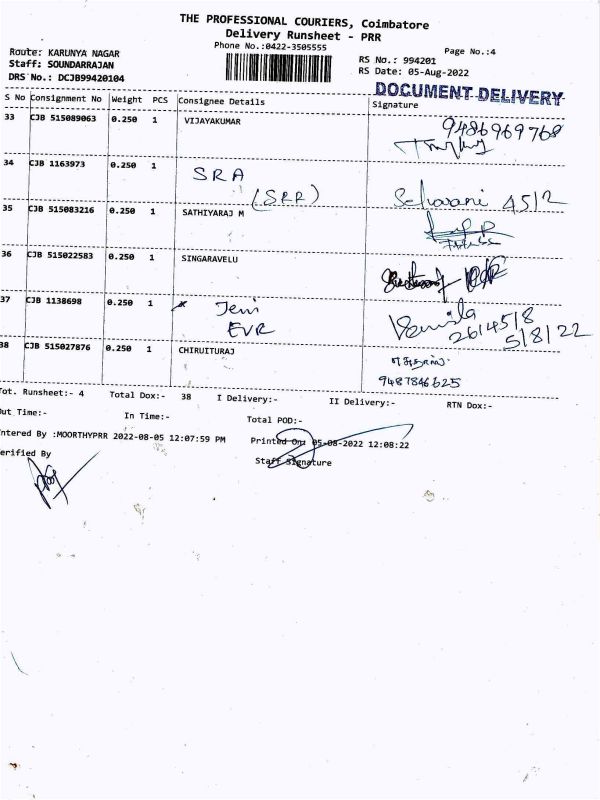 THE PROFESSIONAL COURIERS, Coimbatore
Delivery Runsheet - PRR
Phone No.:0422-3505555
Page No.:4
Route: KARUNYA NAGAR
RS No.: 994201
Staff: SOUNDARRAJAN
RS Date: 05-Aug-2022
DRS No.: DCJB99420104
DOCUMENT DELIVERY
S No Consignment No Weight PCS Consignee Details Signature
33 CJB 515089063 0.250 1 VIJAYAKUMAR 9486969768
34 CJB 1163973 0.250 1 SRA
(SRR) 4512
35 CJB 515083216 0.250 1 SATHIYARAJ M
36 CJB 515022583 0.250 1 SINGARAVELU
37 CJB 1138698 0.250 1 Jeni
EVR 264518
5/8/22
38 CJB 515027876 0.250 1 CHIRUITURAJ
9487846625
Tot. Runsheet:- 4 Total Dox:- 38 I Delivery:- II Delivery:- RTN Dox:-
Out Time:- In Time:- Total POD:-
Entered By :MOORTHYPRR 2022-08-05 12:07:59 PM Printed On: 05-08-2022 12:08:22
Verified By Staff Signature